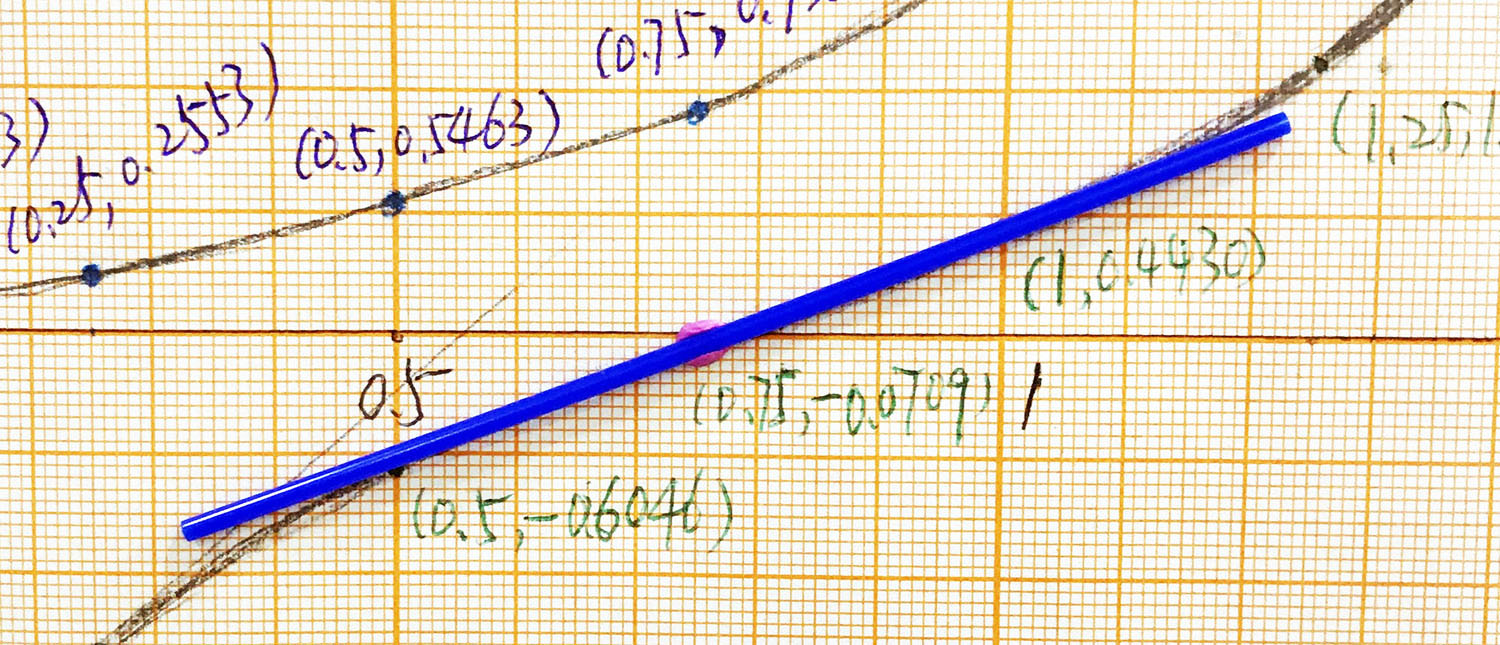 (0.75, 0.
3)
(0.25, 0.2553)
(0.5, 0.5463)
(1.25, 1.
(1, 0.4430)
0.5
(0.75, -0.0709)
1
(0.5, -0.6046)